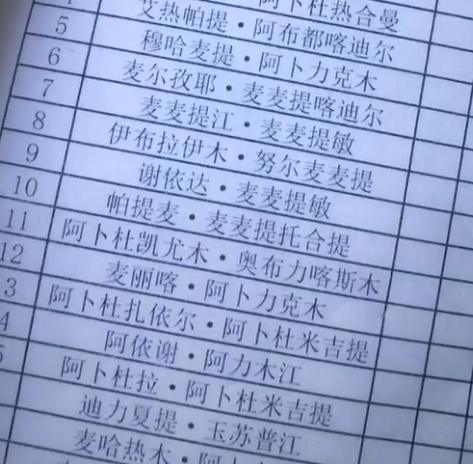 阿卜杜热合曼
艾热帕提·阿布都喀迪尔
5 穆哈麦提·阿卜力克木
6 麦尔孜耶·麦麦提喀迪尔
7 麦麦提江·麦麦提敏
8 伊布拉伊木·努尔麦麦提
9 谢依达·麦麦提敏
10 帕提麦·麦麦提托合提
11 阿卜杜凯尤木·奥布力喀斯木
12 麦丽喀·阿卜力克木
3 阿卜杜扎依尔·阿卜杜米吉提
4 阿依谢·阿力木江
阿卜杜拉·阿卜杜米吉提
迪力夏提·玉苏普江
麦哈热木·阿